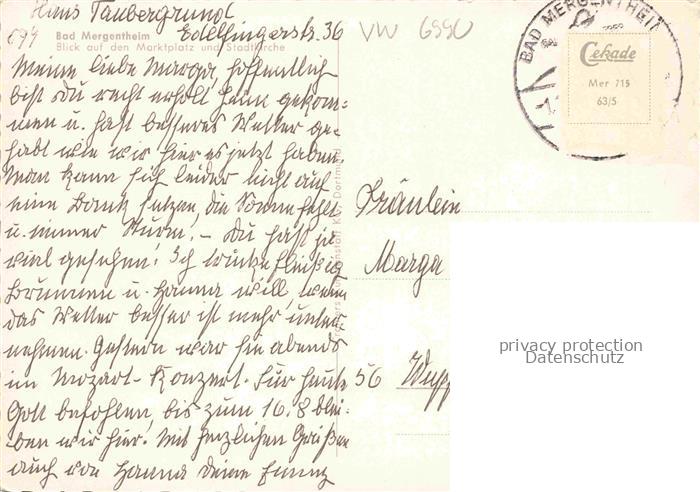 Haus Taubergrund
Edelfingerstr. 36
699
Bad Mergentheim
Blick auf den Marktplatz und Stadtkirche
VW 6990
BAD MERGENTHEIM
Cekade
Mer 715
63/5
Meine liebe Marga, hoffentlich
bist du recht erholt heim gekom-
men u. hast besseres Wetter ge-
habt wie wir hier es jetzt haben.
Man kann sich leider nicht auf
eine Bank setzen, die Sonne fehlt
u. immer Sturm. – Du hast ja
viel gesehen! Ich trinke fleißig
Brunnen u. Hanna will, wenn
das Wetter besser ist mehr unter-
nehmen. Gestern war sie abends
im Mozart-Konzert. Für heute
Gott befohlen, bis zum 16.8 blei-
ben wir hier! Mit herzlichen Grüßen
auch von Hanna Deine Emmy
Fräulein
Marga
56 Wupp
Dortmund
privacy protection
Datenschutz